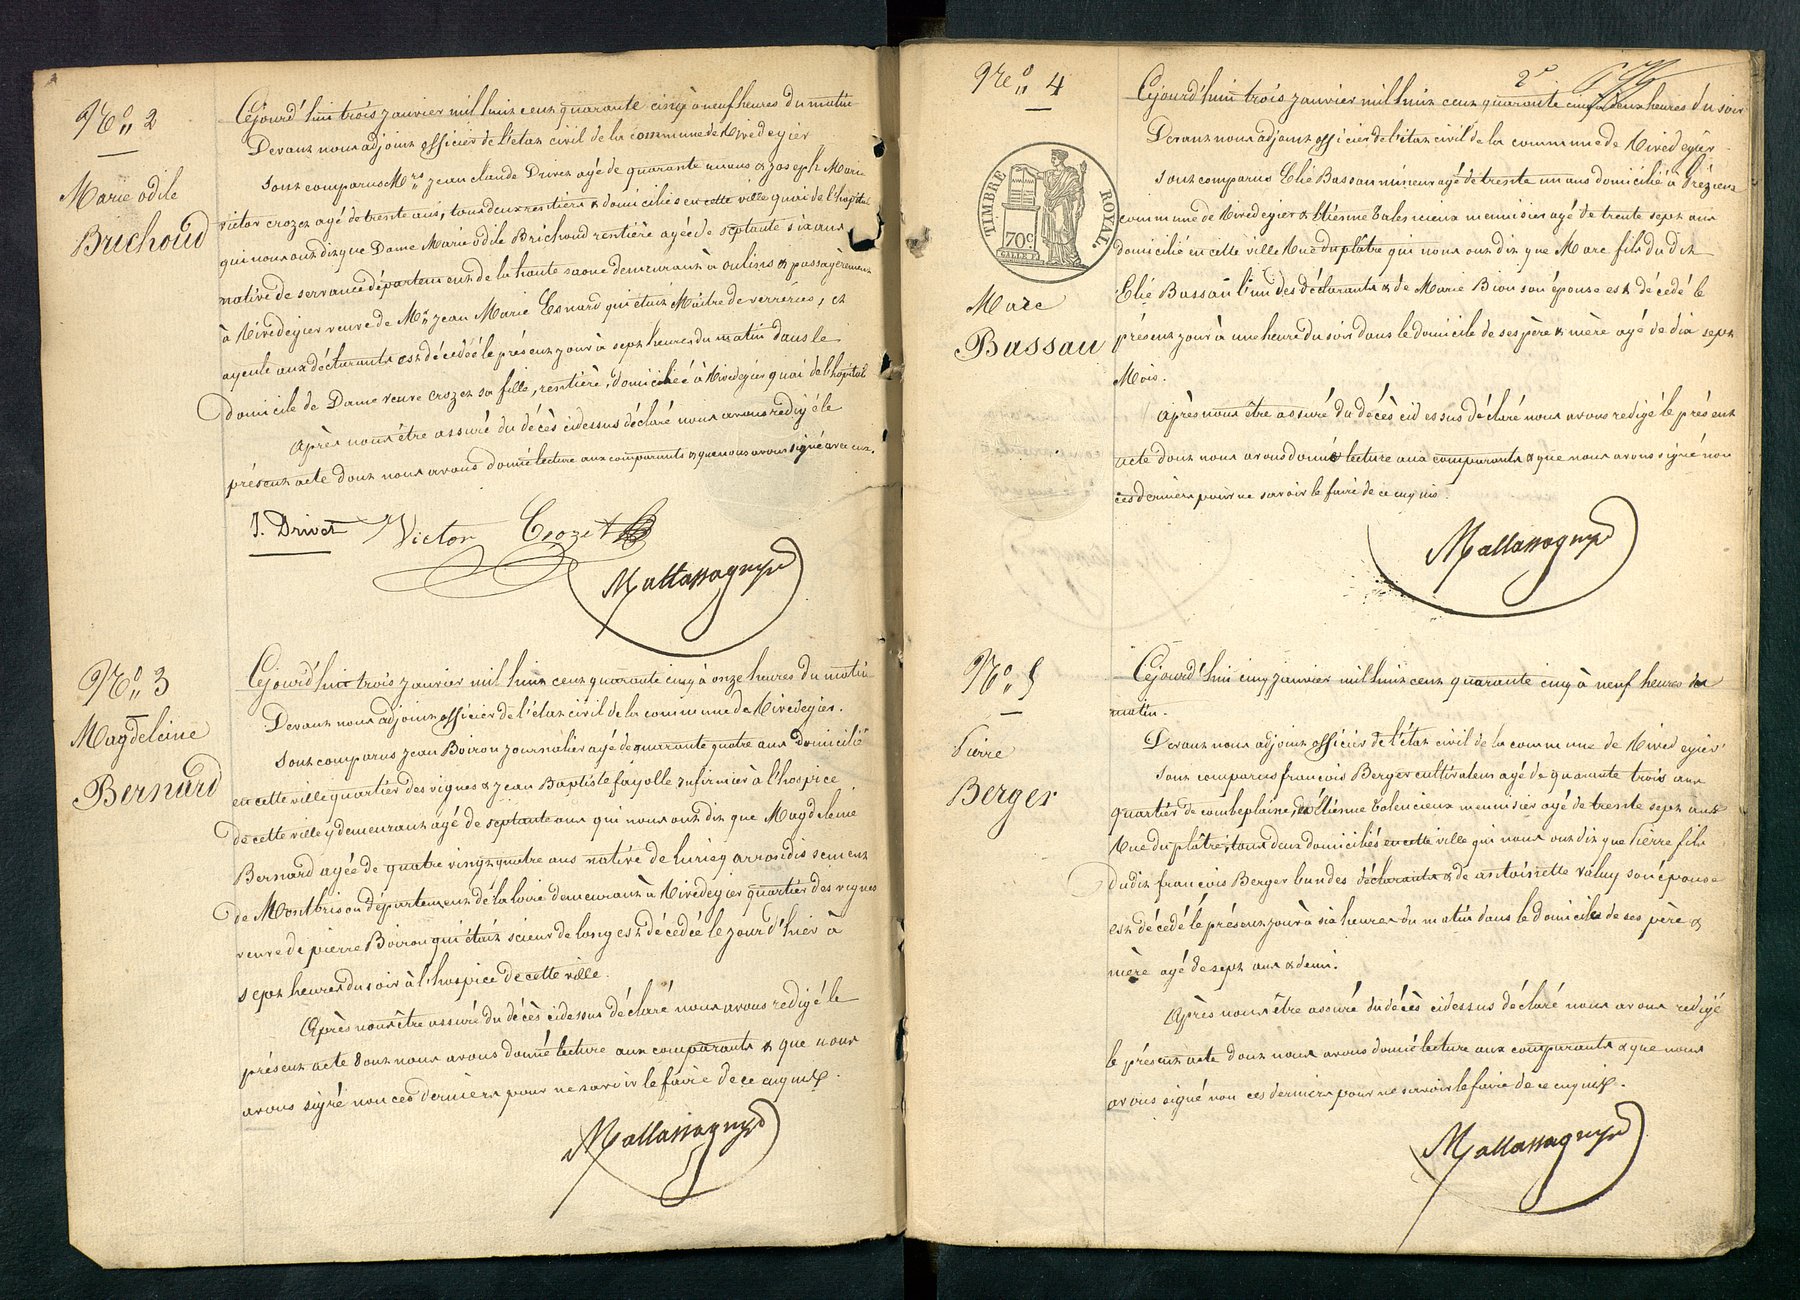 N.° 2
Marie odile
Brichoud
Cejourd'hui trois janvier mil huit cent quarante cinq à neuf heures du matin
Devant nous adjoint officier de l'état civil de la commune de Rivedegier
sont comparus Mrs jean claude Drivet agé de quarante un ans & joseph Marie
victor crozet agé de trente ans, tous deux rentiers & domiciliés en cette ville quai de l'hopital
qui nous ont dit que Dame Marie odile Brichoud rentière agée de septante six ans
native de servance département de la haute saone demeurant à oulins & passagèrement
à Rivedegier veuve de Mr jean Marie Esnard qui était Maitre de verreries, et
ayeule aux déclarants est décédée le présent jour à sept heures du matin dans le
domicile de Dame veuve crozet sa fille, rentière, domiciliée à Rivedegier quai de l'hopital
Après nous être assuré du décès cidessus déclaré nous avons redigé le
présent acte dont nous avons donné lecture aux comparants & que nous avons signé avec eux.
J. Drivet Victor Crozet
Mallassagny
N.° 3
Magdeleine
Bernard
Cejourd'hui trois janvier mil huit cent quarante cinq à onze heures du matin
Devant nous adjoint officier de l'état civil de la commune de Rivedegier.
sont comparus jean Boiron journalier agé de quarante quatre ans domicilié
en cette ville quartier des vignes & jean Baptiste fayolle infirmier à l'hospice
de cette ville y demeurant agé de septante ans qui nous ont dit que Magdeleine
Bernard agée de quatre vingt quatre ans native de luriecq arrondissement
de Montbrison département de la loire demeurant à Rivedegier quartier des vignes
veuve de pierre Boiron qui était scieur de long est décédée le jour d'hier à
sept heures du soir à l'hospice de cette ville.
Après nous être assuré du décès cidessus déclaré nous avons redigé le
présent acte dont nous avons donné lecture aux comparants & que nous
avons signé non ces derniers pour ne savoir le faire de ce enquis.
Mallassagny
N.° 4
TIMBRE ROYAL.
70c
Marc
Bassau
2e
Cejourd'hui trois janvier mil huit cent quarante cinq à deux heures du soir
Devant nous adjoint officier de l'état civil de la commune de Rivedegier
sont comparus Elié Bassau mineur agé de trente un ans domicilié à Grézieux
commune de Rivedegier & Etienne Valencieux menuisier agé de trente sept ans
domicilié en cette ville Rue du platre qui nous ont dit que Marc fils du dit
Elié Bassau l'un des déclarants & de Marie Bion son épouse est décédé le
présent jour à une heure du soir dans le domicile de ses père & mère agé de dix sept
Mois.
Après nous être assuré du décès cidessus déclaré nous avons redigé le présent
acte dont nous avons donné lecture aux comparants & que nous avons signé non
ces derniers pour ne savoir le faire de ce enquis.
Mallassagny
N.° 5
Pierre
Berger
Cejourd'hui cinq janvier mil huit cent quarante cinq à neuf heures du
matin.
Devant nous adjoint officier de l'état civil de la commune de Rivedegier
sont comparus françois Berger cultivateur agé de quarante trois ans
quartier de combeplaine, & Etienne Valencieux menuisier agé de trente sept ans
Rue du platre, tous deux domiciliés en cette ville qui nous ont dit que Pierre fils
dudit françois Berger l'un des déclarants & de antoinette valuy son épouse
est décédé le présent jour à six heures du matin dans le domicile de ses père &
mère agé de sept ans & demi.
Après nous être assuré du décès cidessus déclaré nous avons redigé
le présent acte dont nous avons donné lecture aux comparants & que nous
avons signé non ces derniers pour ne savoir le faire de ce enquis.
Mallassagny